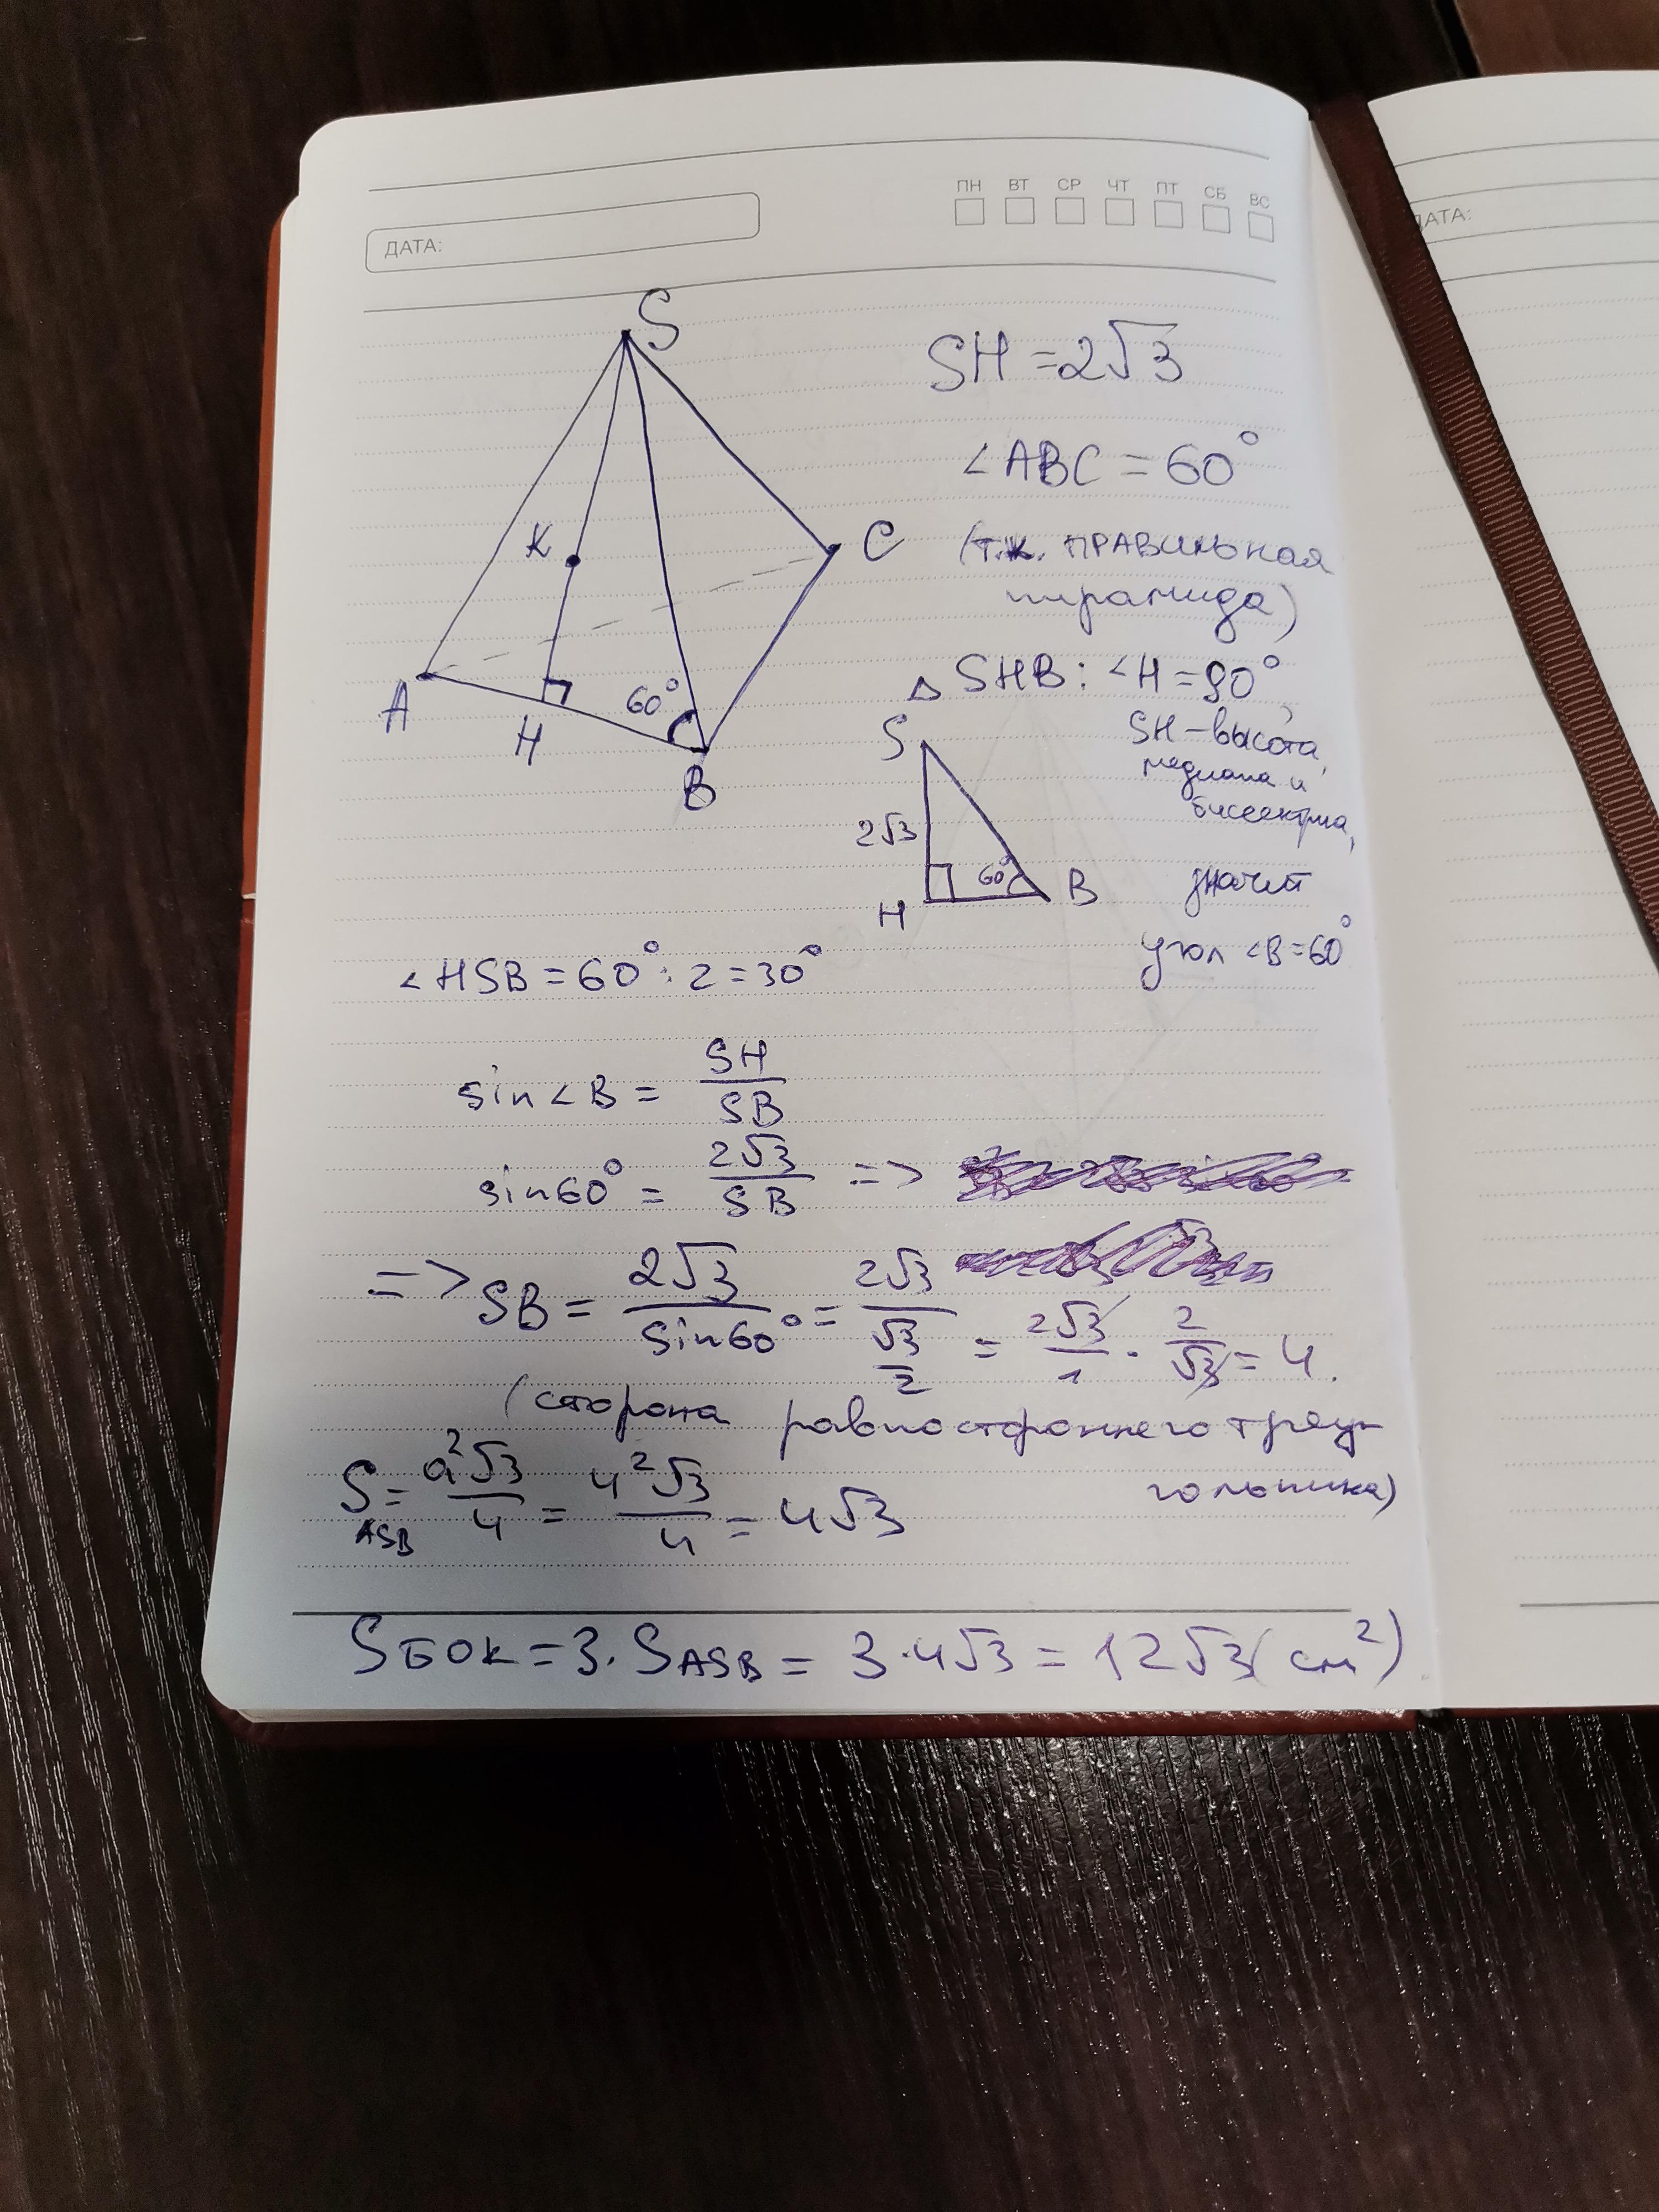 ПН ВТ СР ЧТ ПТ СБ ВС
ДАТА:
ДАТА:
S
K
C
A
H
60°
B
SH = 2√3
∠ABC = 60°
(т.к. ПРАВИЛЬНАЯ
пирамида)
△ SHB: ∠H = 90°,
SH – высота,
медиана и
биссектриса,
значит
угол ∠B = 60°
S
2√3
60°
H
B
∠HSB = 60° : 2 = 30°
sin∠B = SH/SB
sin60° = 2√3/SB =>
=> SB = 2√3/sin60° = 2√3/(√3/2) = 2√3/1 · 2/√3 = 4.
(сторона равностороннего треу-
гольника)
S ASB = a²√3/4 = 4²√3/4 = 4√3
SБОК = 3 · SASB = 3 · 4√3 = 12√3 (см²)